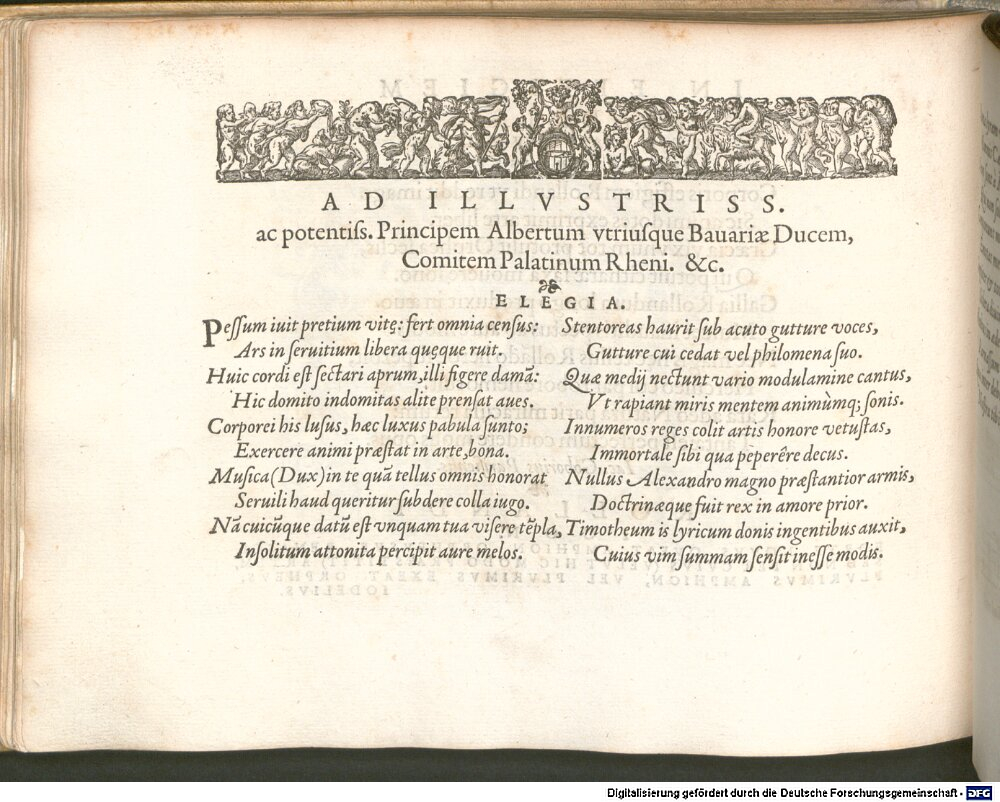 AD ILLVSTRISS.
ac potentiſs. Principem Albertum vtriuſque Bauariæ Ducem,
Comitem Palatinum Rheni. &c.
ELEGIA.
Peſſum iuit pretium vitę: fert omnia cenſus:
Ars in ſeruitium libera quęque ruit.
Huic cordi eſt ſectari aprum, illi figere damã:
Hic domito indomitas alite prenſat aues.
Corporei his luſus, hæc luxus pabula ſunto;
Exercere animi præſtat in arte, bona.
Muſica (Dux) in te quã tellus omnis honorat
Seruili haud queritur ſubdere colla iugo.
Nã cuicũque datũ eſt vnquam tua viſere tẽpla,
Inſolitum attonita percipit aure melos.
Stentoreas haurit ſub acuto gutture voces,
Gutture cui cedat vel philomena ſuo.
Quæ medij nectunt vario modulamine cantus,
Vt rapiant miris mentem animùmq; ſonis.
Innumeros reges colit artis honore vetuſtas,
Immortale ſibi qua peperêre decus.
Nullus Alexandro magno præſtantior armis,
Doctrinæque fuit rex in amore prior.
Timotheum is lyricum donis ingentibus auxit,
Cuius vim ſummam ſenſit ineſſe modis.
Digitalisierung gefördert durch die Deutsche Forschungsgemeinschaft - DFG